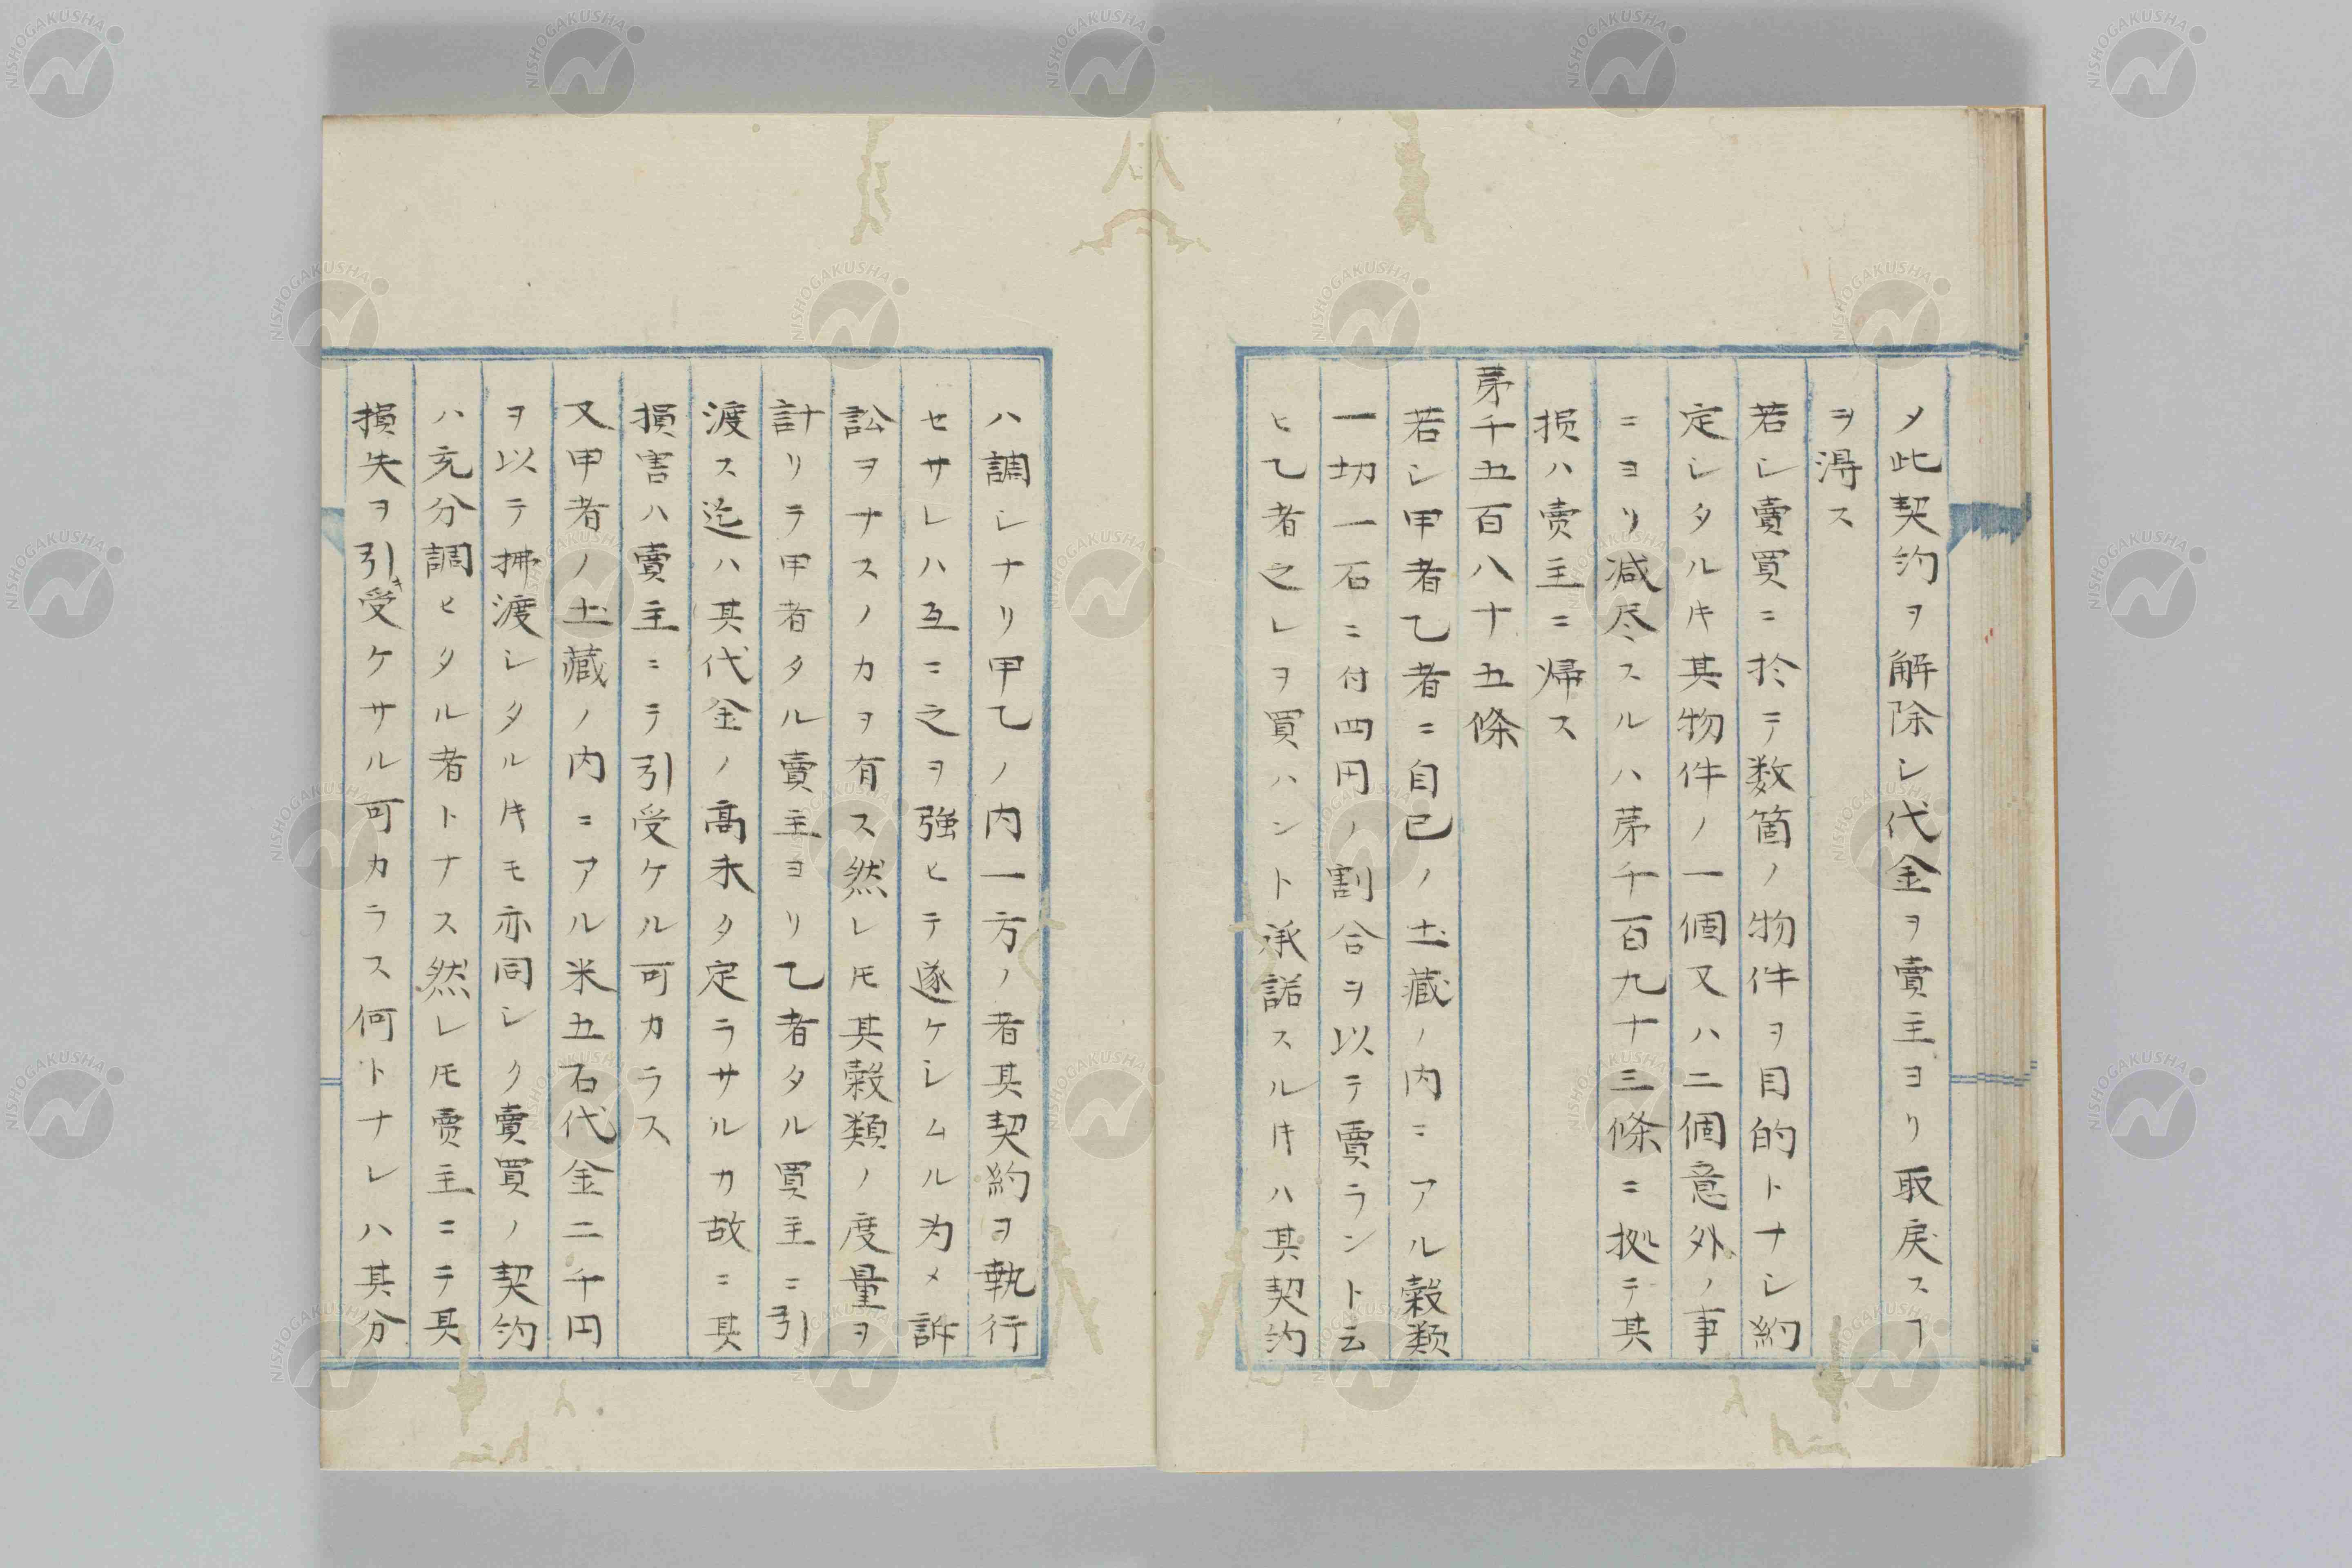 メ此契約ヲ解除シ代金ヲ賣主ヨリ取戻スヿ
ヲ得ス
若シ賣買ニ於テ数箇ノ物件ヲ目的トナシ約
定シタルキ其物件ノ一個又ハ二個意外ノ事
ニヨリ減尽スルハ苐千百九十三條ニ拠テ其
损ハ賣主ニ帰ス
苐千五百八十五條
若シ甲者乙者ニ自己ノ土藏ノ内ニアル穀類
一切一石ニ付四円ノ割合ヲ以テ賣ラント云
ヒ乙者之レヲ買ハント承諾スルキハ其契約
ハ調シナリ甲乙ノ内一方ノ者其契約ヲ執行
セサレハ互ニ之ヲ強ヒテ遂ケシムル为メ訴
訟ヲナスノカヲ有ス然レ𪜈其穀類ノ度量ヲ
計リテ甲者タル賣主ヨリ乙者タル買主ニ引
渡ス迄ハ其代金ノ髙未タ定ラサルカ故ニ其
損害ハ賣主ニテ引受ケル可カラス
又甲者ノ土藏ノ内ニアル米五石代金二千円
ヲ以テ拂渡シタルキモ亦同シク賣買ノ契約
ハ充分調ヒタル者トナス然レ𪜈賣主ニテ其
損失ヲ引キ受ケサル可カラス何トナレハ其分
NISHOGAKUSHA